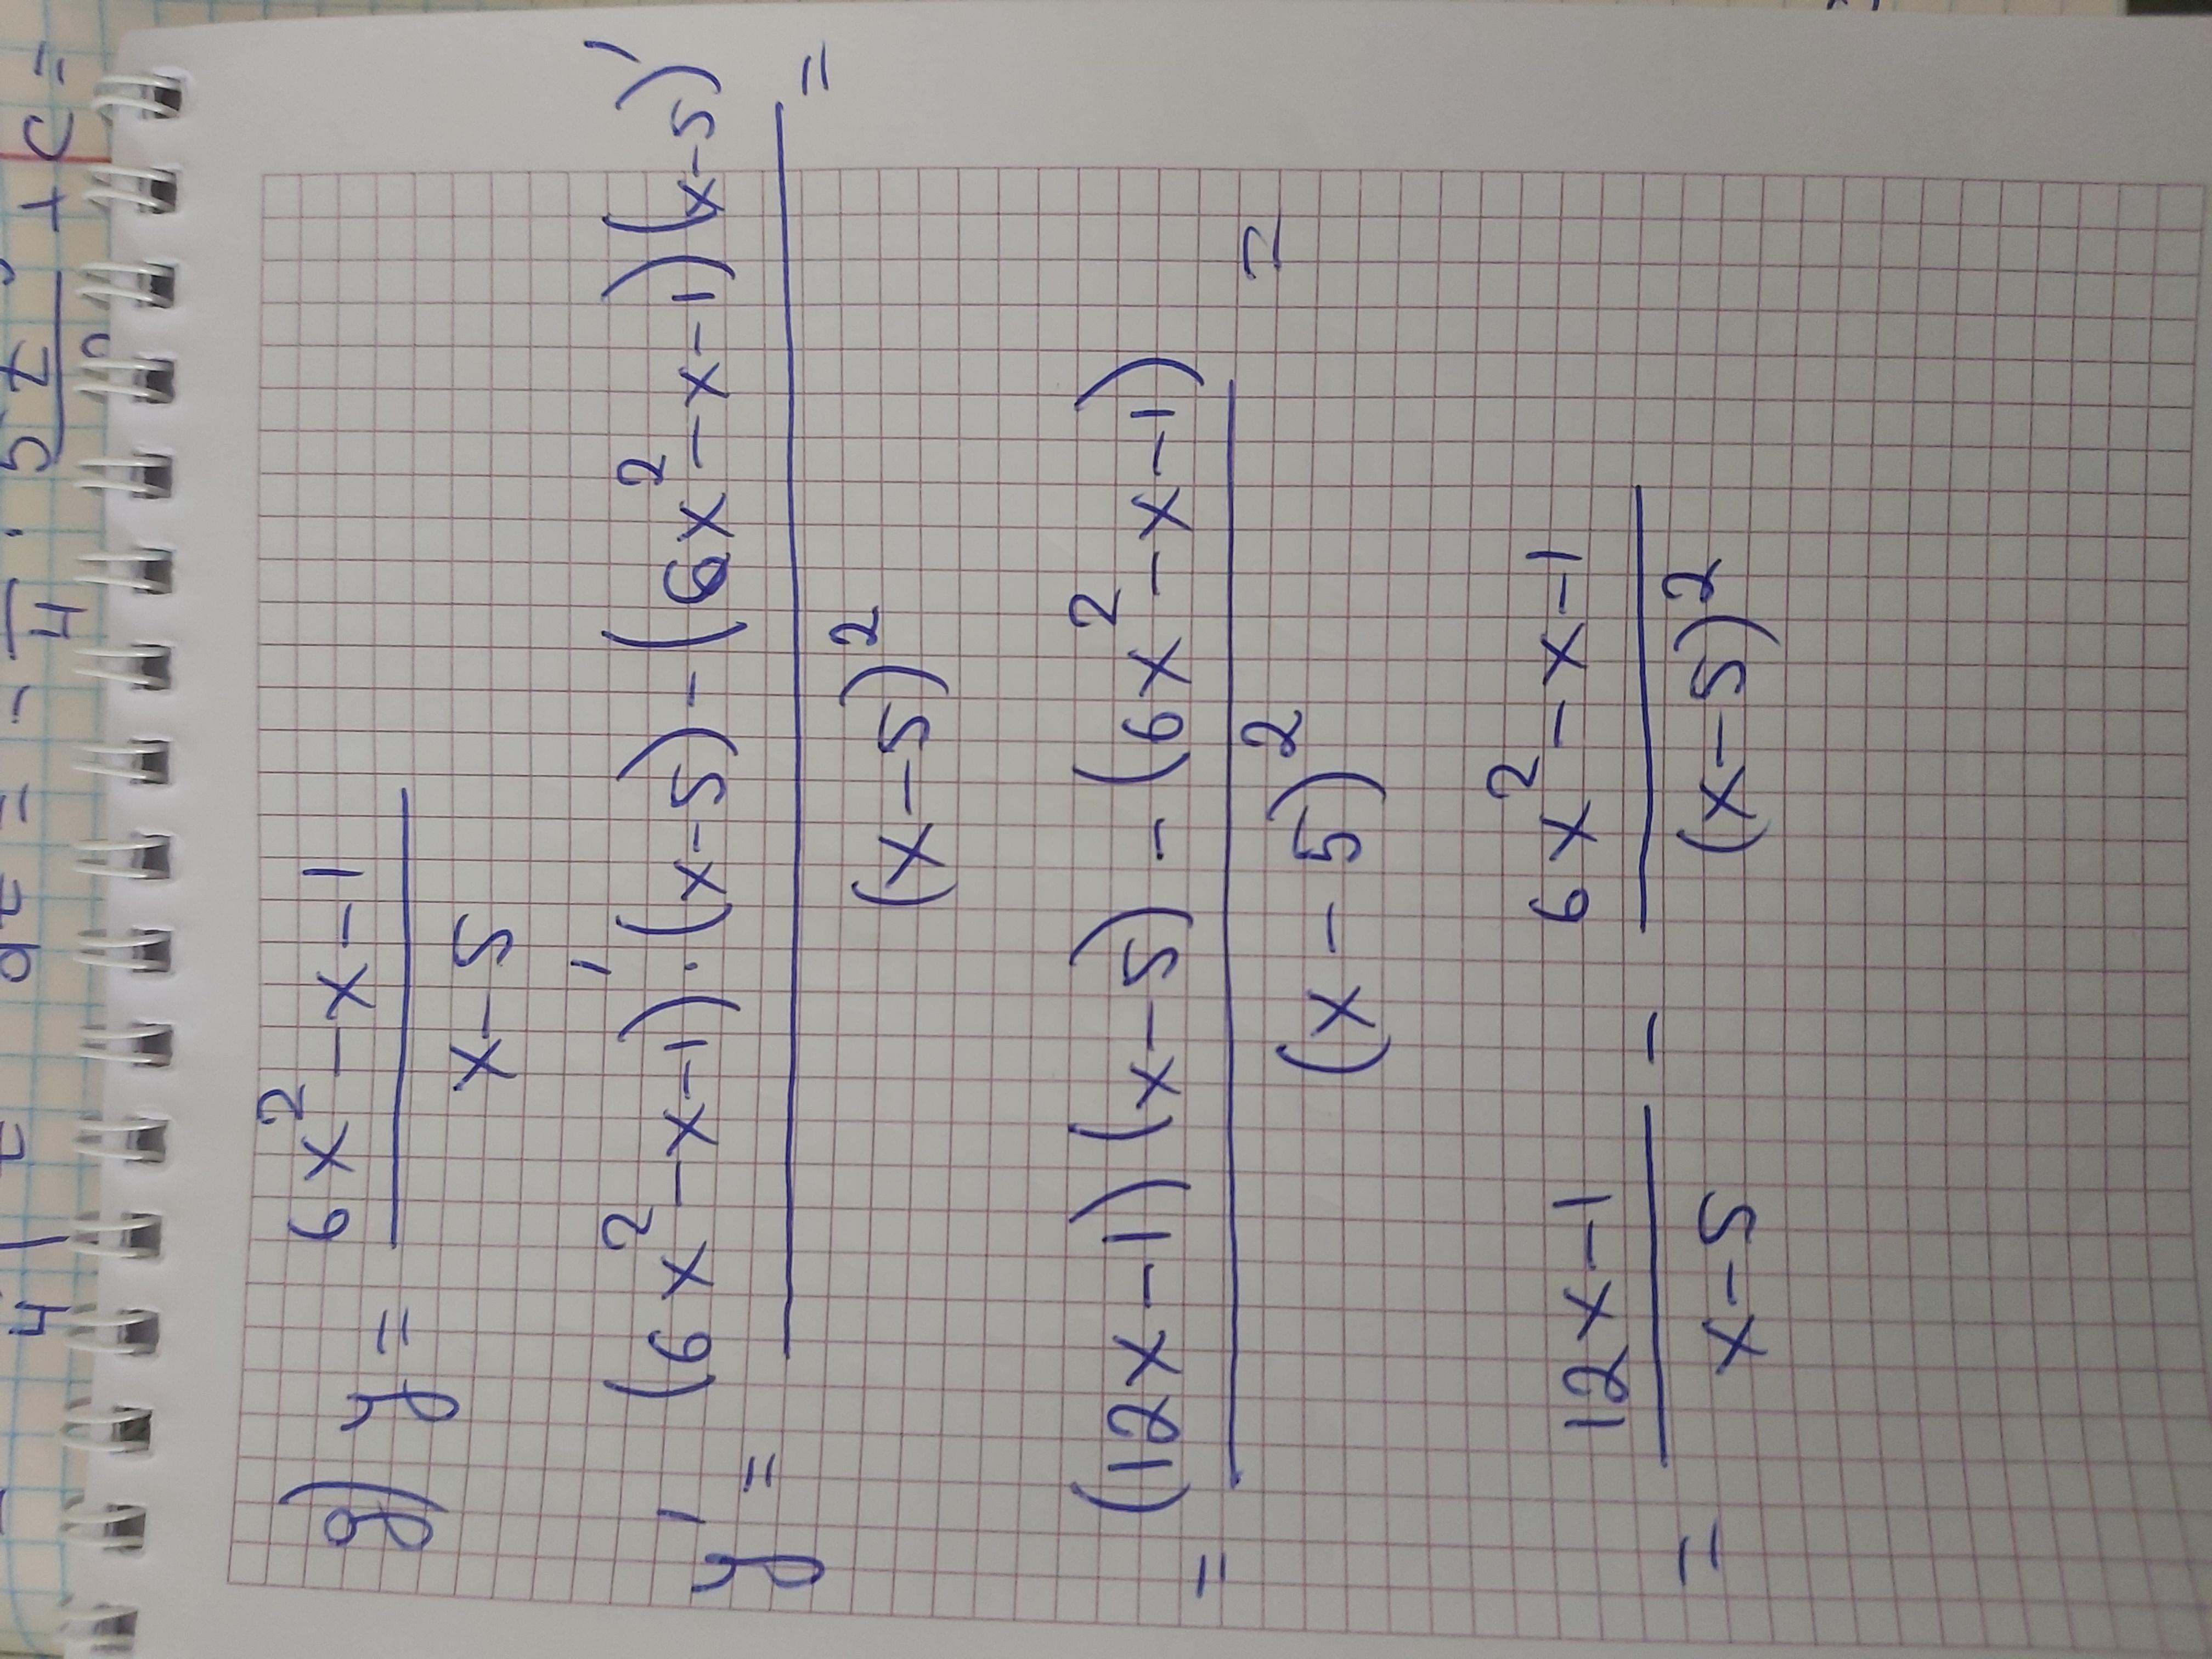 д) y = (6x² - x - 1)/(x - 5)
y' = ((6x² - x - 1)' · (x - 5) - (6x² - x - 1)(x - 5)')/(x - 5)² =
= ((12x - 1)(x - 5) - (6x² - x - 1))/(x - 5)² =
= (12x - 1)/(x - 5) - (6x² - x - 1)/(x - 5)²